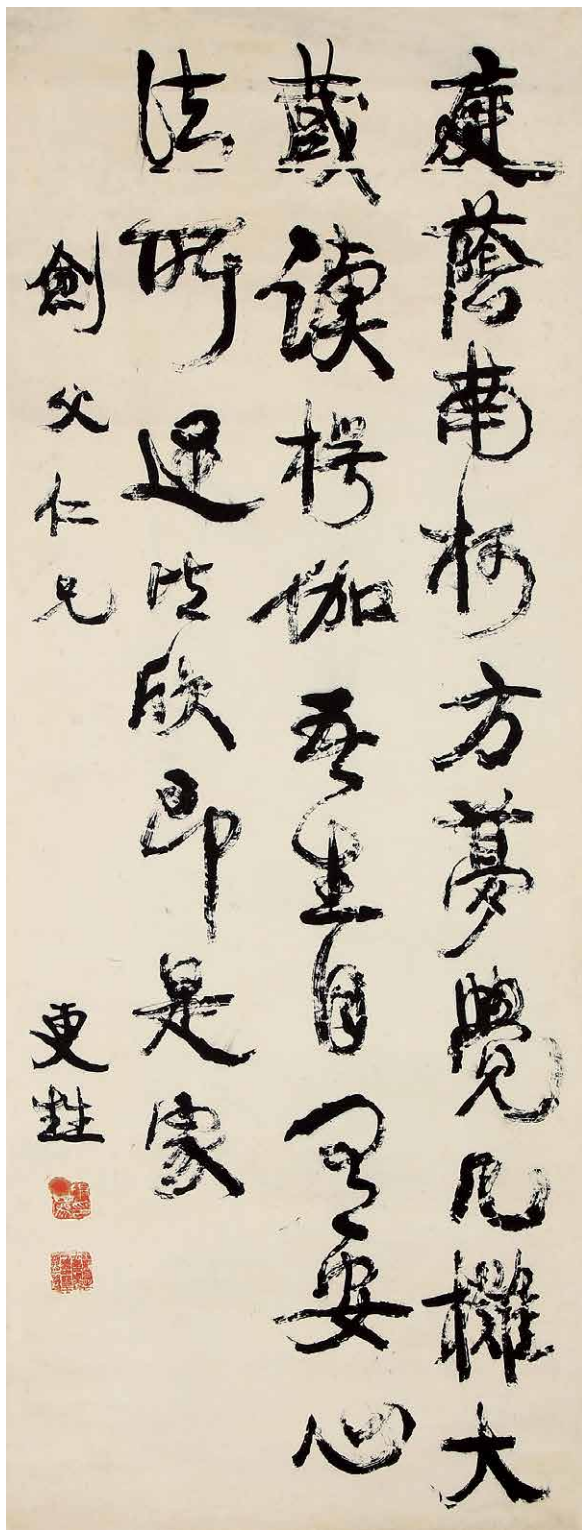 庭蔭南柯方夢覺几攤大
藏讀楞伽吾生自有安心
法所遇皆欣即是家
劍父仁兄
更甡